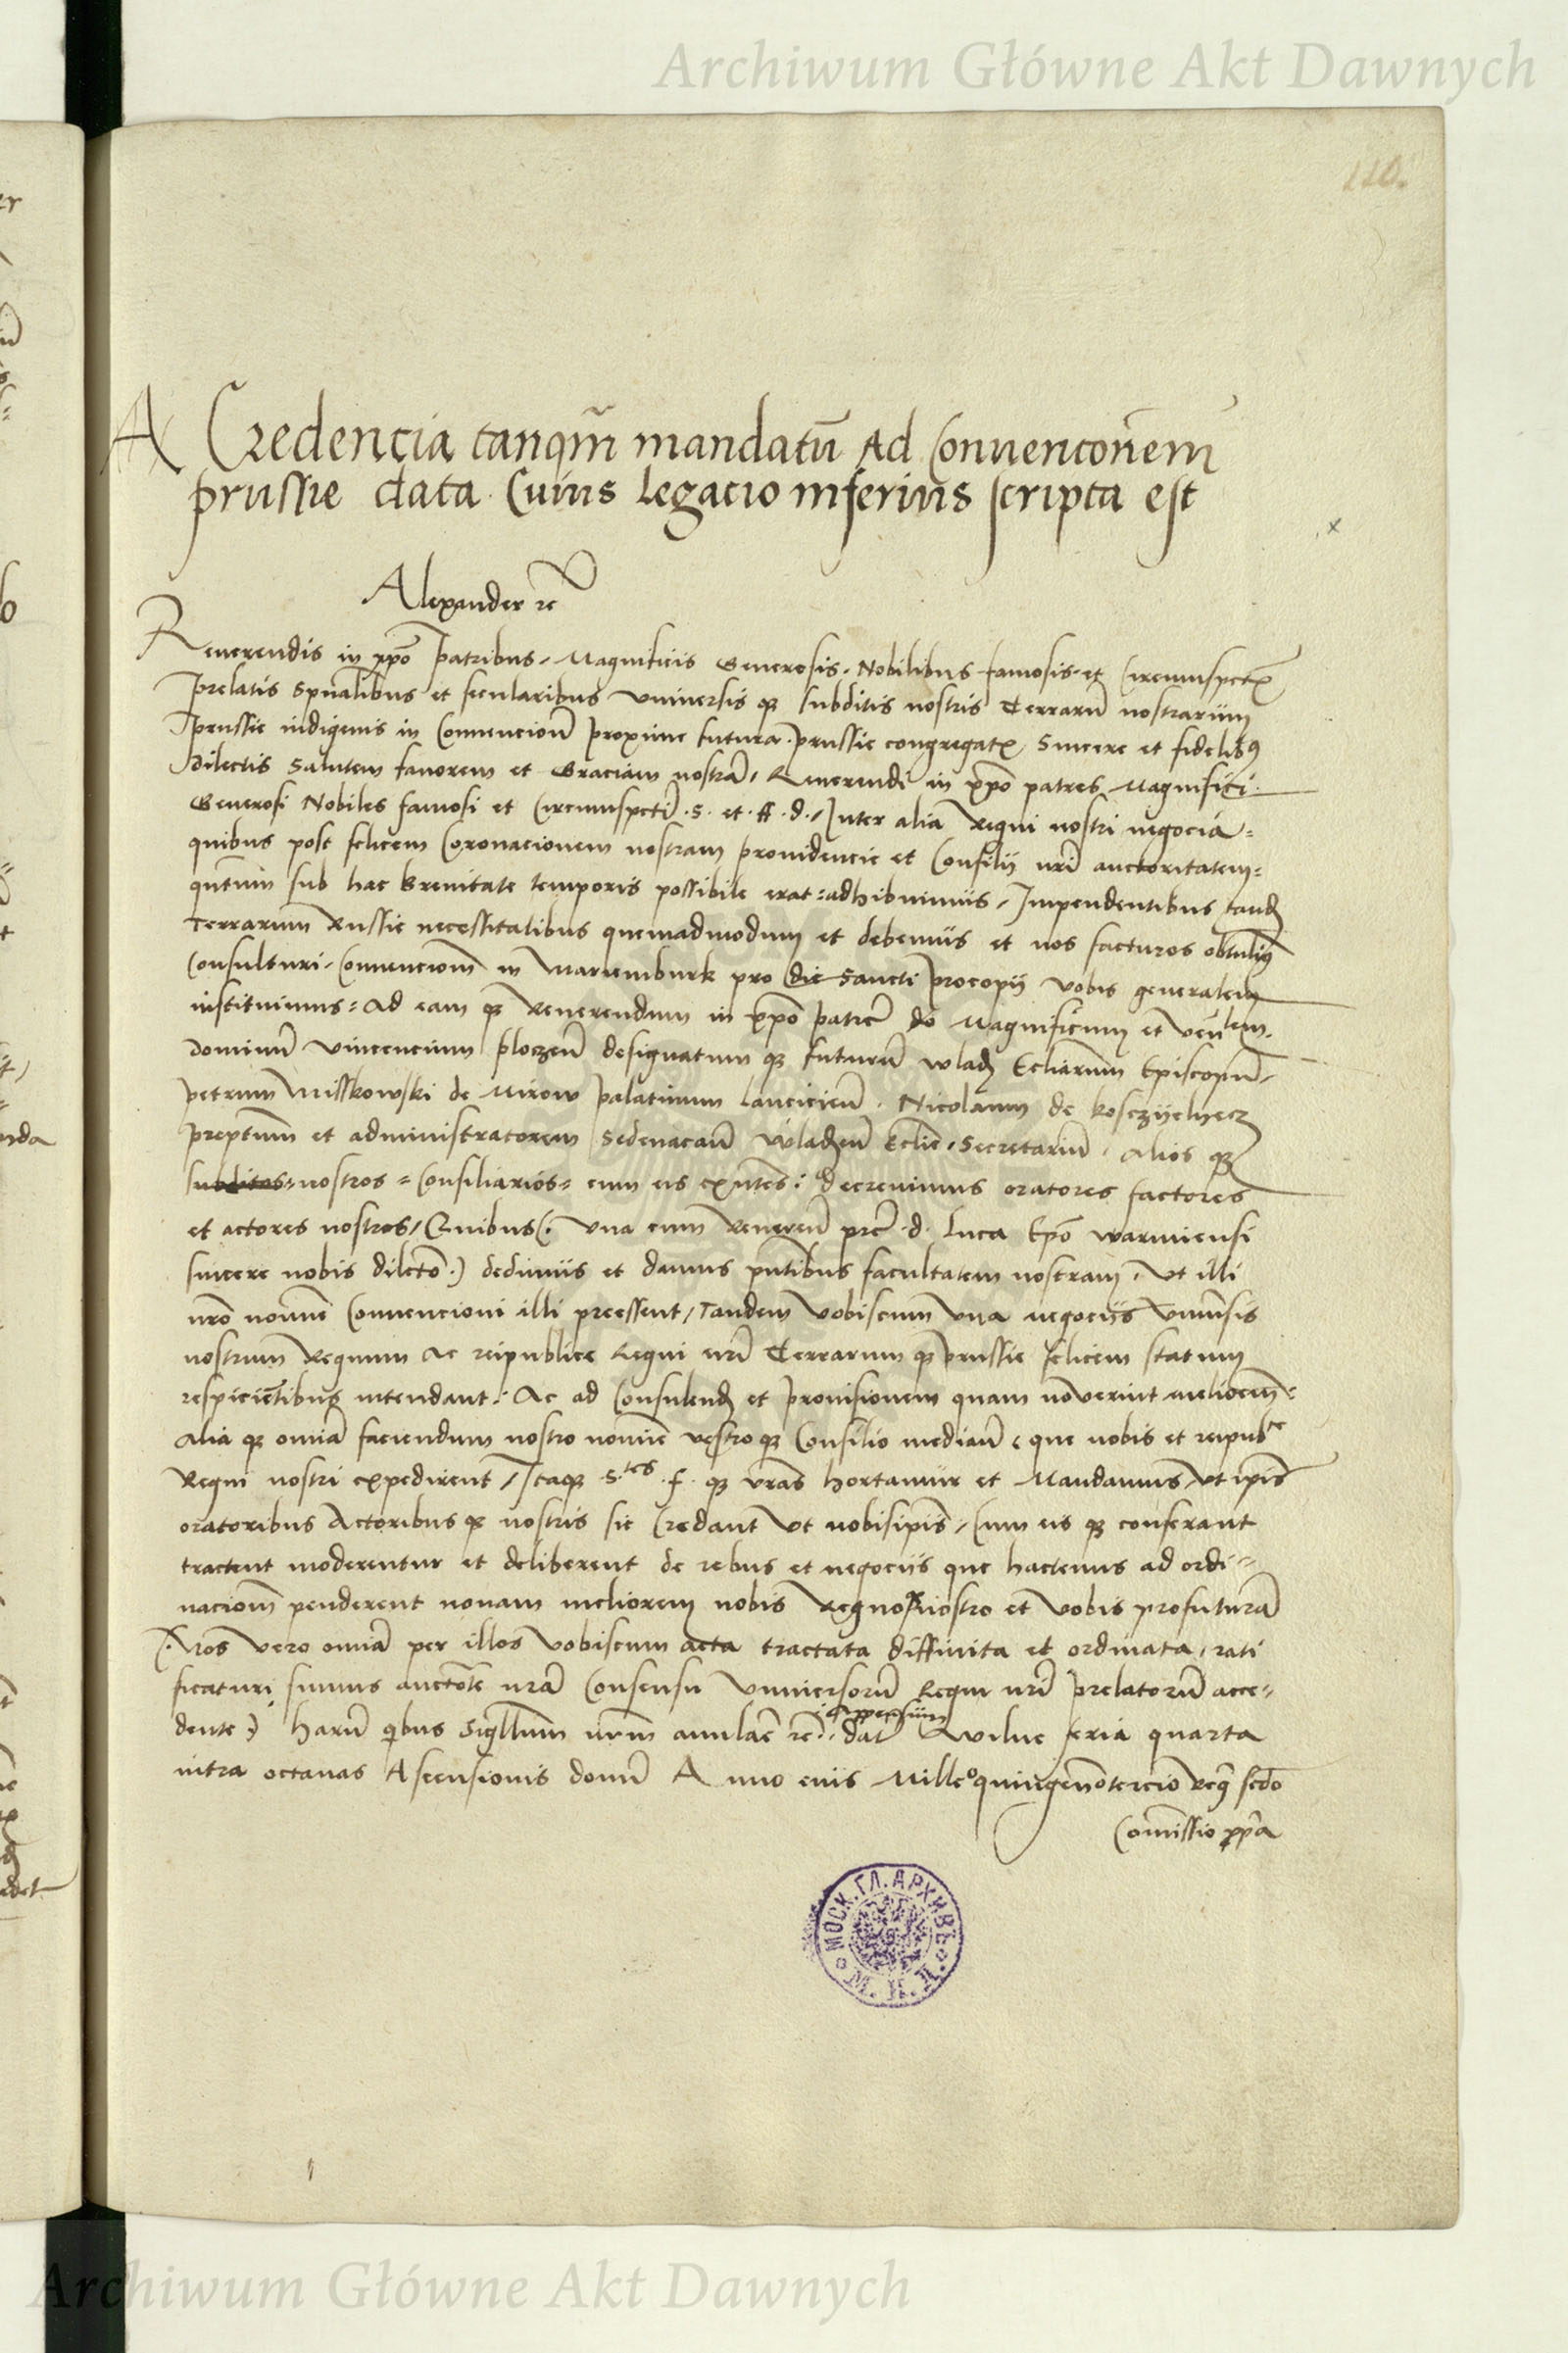 Archiwum Główne Akt Dawnych
110.
A Credencia tanqm̃ mandatũ Ad Conuencoñem
prussie data Cuius Legacio inferius scripta est
x
Alexander rc̃
Reuerendis in xp̃o patribus, Magnificis Generosis, Nobilibus famosis et Circumspect
prelatis spũalibus et secularibus vniuersis qz subditis nostris Terrarũ nostrarum
prussie indigenis in Conuencioñ proxime futura prussie congregat, Sincere et fidelibꝰ
dilectis Salutem fauorem et Graciam nostrã, Reuerendi in xp̃o patres Magnifici
Generosi Nobiles famosi et Circumspecti .s. et .ff. d., Inter alia Regni nostri negocia
quibus post felicem Coronacionem nostram prouidencie et Consilij nr̃i auctoritatem
qũtum sub hac breuitate temporis possibile erat adhibuimus, Impendentibus tand
Terrarum Russie necessitatibus quemadmodum et debemus et nos facturos obtulim
Consulturi, Conuencioñ in Mariemburk pro die sancti procopij vobis generalem
instituimus, Ad eam qz Reuerendum in xp̃o patrẽ do Magnificum et veñlem
dominũ vincencium ploczeñ designatum qz futurũ wlad Ecliarum Episcopũ,
petrum Misskowski de Mirow palatinum Lancicieñ, Nicolaum de kosczyelyecz
preptum et administratorem Sedeuacañ wladzeñ Eclie, Secretariũ, alios qz
subditos nostros Consiliarios cum eis exñtes, decreuimus oratores factores
et actores nostros, Quibus (. vna cum Reuereñ prẽ .d. Luca Ep̃o warmiensi
sincere nobis dilecto .) dedimus et damus pñtibus facultatem nostram, vt illi
nr̃o nomine Conuencioni illi preessent, Tandem vobiscum vna negocijs vniũsis
nostrum Regnum ac reipublice Regni nr̃i Terrarum qz prussie felicem statum
respiciẽtibus intendant, Ac ad Consulend et prouisionem quam nouerint meliorem
alia qz omnia faciendum nostro nomine vestro qz Consilio mediañ que nobis et reipubce
Regni nostri expedirent, Itaqz S.tes .f. qz vr̃as hortamur et Mandamus, vt ipis
oratoribus Actoribus qz nostris sic Credant vt nobisipis, Cum eis qz conferant
tractent moderentur et deliberent de rebus et negocijs que hactenus ad ordi
nacioñ penderent nouam meliorem nobis Regno nostro et vobis profuturã
(. Nos vero omnia per illos vobiscum acta tractata diffinita et ordinata, rati
ficaturi sumus auctote nr̃a Consensu vniuersorũ Regni nr̃i prelatorũ acce
dente .) harũ qibus Sigillum nr̃m anulare rẽ appensum dat wilne feria quarta
intra octauas Ascensionis domĩ Anno eius Millĩo quingentotercio reg̃ scdo
Com̃issio pp̃a
МОСК. ГЛ. АРХИВЪ М. И. Д.
Archiwum Główne Akt Dawnych